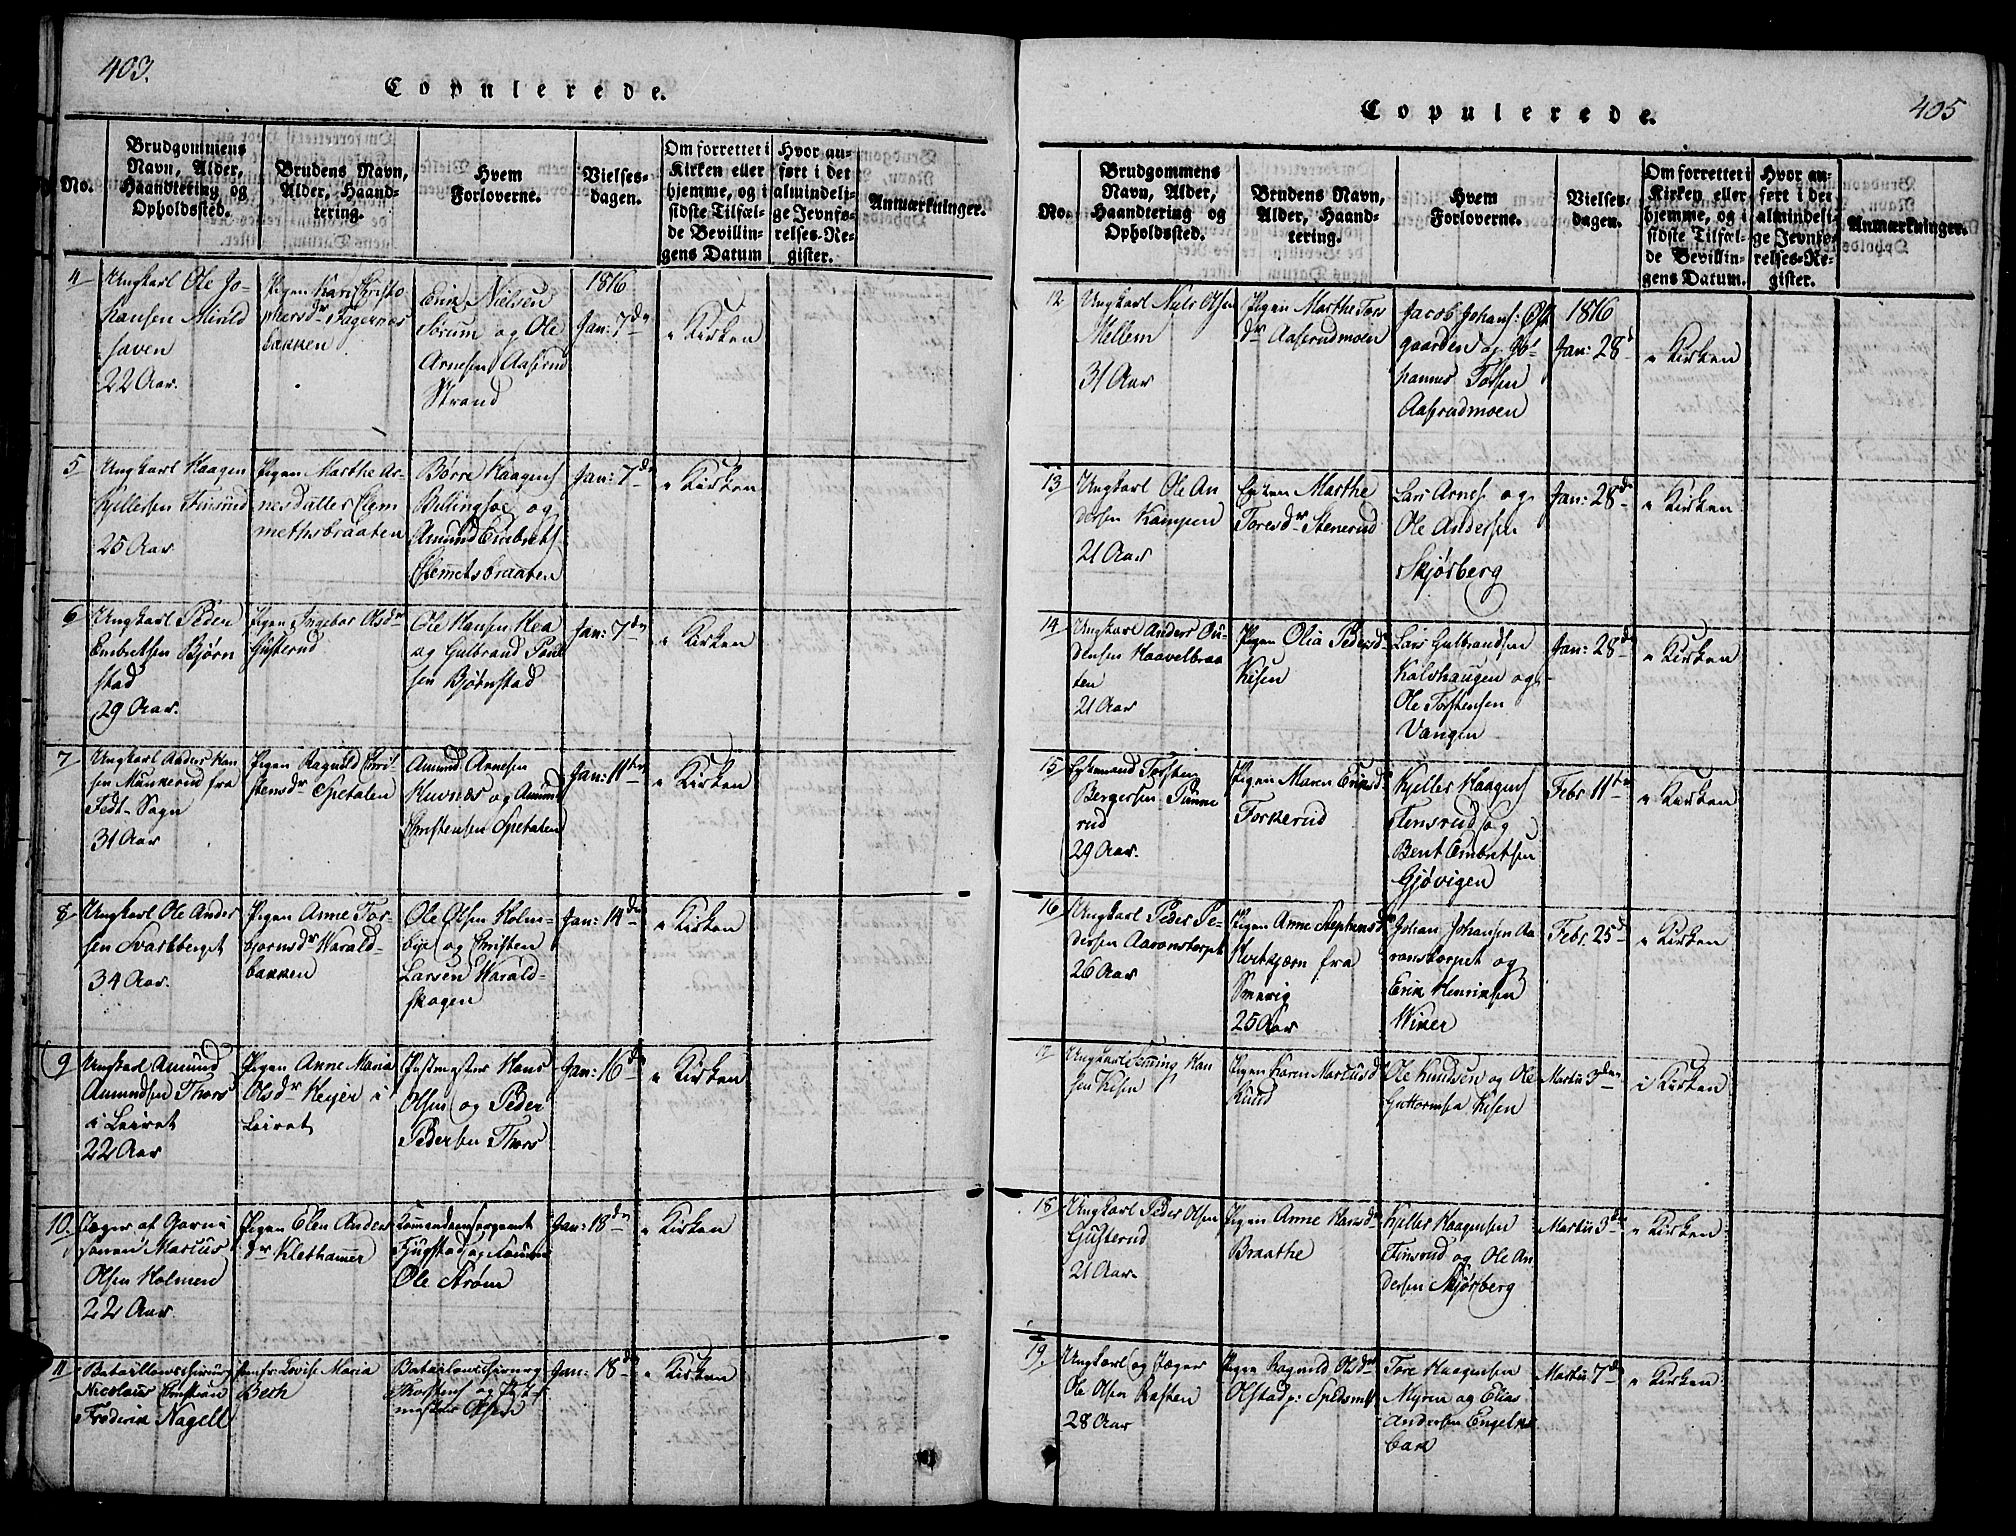 403.
Copulerede.
No.
Brudgommens
Navn, Alder,
Haandtering og
Opholdssted.
Brudens Navn,
Alder, Haand-
tering.
Hvem
Forloverne.
Vielses-
dagen.
Om forrettet i
Kirken eller
hjemme, og i
sidste Tilfæl-
de Bevillin-
gens Datum
Hvor an-
ført i det
almindeli-
ge Jevnfø-
relses-Re-
gister.
Anmærkninger.
4
Ungkarl Ole Jo-
hansen
22 Aar.
Pigen Kari Christo
phersdr Fagernes
bakken
Erik Nielsen
Sorum og Ole
Arnesen Aaserud
Strand
1816
Jan: 7de
i Kirken
5
Ungkarl Haagen
Kjellesen Finsrud
25 Aar
Pigen Marthe Ar-
nesdatter Clem
methsbraaten
Børre Haagens
Billingsøe og
Amund Embrets
Clemetsbraaten
Jan: 7de
i Kirken
6
Ungkarl Peder
Embretsen Bjørn
stad
29 Aar.
Pigen Ingebor Olsdr
Gusterud
Ole Hansen Moa
og Gulbrand Poul
sen Bjørnstad
Jan: 7de
i Kirken
7
Ungkarl Anders Han
sen Munkerud fra
Fedt-Sogn
31 Aar
Pigen Ragnild Chri
stensdr Spetalen
Amund Arnesen
Kuvnæs og Amund
Christensen Spetalen
Jan: 11te
i Kirken
8
Ungkarl Ole Ander
sen Svartberget
34 Aar.
Pigen Anne Tor-
bjornsdr Harald-
bakken
Ole Olsen Holm-
bye og Christen
Larsen Harald-
skogen
Jan: 14de
i Kirken
9
Ungkarl Amund
Amundsen Thors
i Leiret
22 Aar
Pigen Anne Maria
Olsdr Meyer i
Leiret
Postmester Hans
Olsen og Peder
Pedersen Thors
Jan: 16de
i Kirken
10.
Jæger af Garni
sonen Marcus
Olsen Holmen
22 Aar.
Pigen Elen Anders
dr Klethamer
Komandeersergeant
Fjugstad og
Ole Strøm
Jan: 18de
i Kirken
11
Bataillonschirurg
Nicolaus Christian
Frederik Nagell
Jomfr: Lovise Maria
Beth
Bataillonschirurg
Thorstens og Post-
mester Olsen
Jan: 18de
i Kirken
405
Copulerede.
No.
Brudgommens
Navn, Alder,
Haandtering og
Opholdssted.
Brudens Navn,
Alder, Haand-
tering.
Hvem
Forloverne.
Vielses-
dagen.
Om forrettet i
Kirken eller
hjemme, og i
sidste Tilfæl-
de Bevillin-
gens Datum.
Hvor an-
ført i det
almindeli-
ge Jevnfø-
relses-Re-
gister.
Anmærkninger.
12
Ungkarl Niels Olsen
Mellem
31 Aar
Pigen Marthe Tors
dr Aaserudmoen
Jacob Johans: Øst
gaarden og Jo-
hannes Torsen
Aaserudmoen
1816
Jan: 28d
i Kirken
13
Ungkarl Ole An
dersen Kampen
21 Aar
Enken Marthe
Toresdr Stenerud
Lars Arnes og
Ole Andersen
Skjørberg
Jan: 28de
i Kirken
14
Ungkarl Anders Ou-
densen Haavelbraa
ten
21 Aar
Pigen Olia Pedersd
Kisen
Lars Gulbrandsen
Kalvhaugen og
Ole Torstensen
Vangen
Jan: 28de
i Kirken
15
Enkemand Torsten
Bergersen Tinne
rud
29 Aar.
Pigen Maren Eriksd
Torkerud
Kjelles Haagens
Flensrud og
Bent Embretsen
Gjøvigen
Febr 11te
i Kirken
16
Ungkarl Peder Pe-
dersen Aaronstorpet
26 Aar
Pigen Anne Stephensd
Hvitkjærn fra
Sverrig
25 Aar
Johan Johansen Aa
ronstorpet og
Erik Henriksen
Wiker
Febr. 25d
i Kirken
17
Ungkarl Henning Han
sen Kisen
Pigen Karen Marcusd
Ruud
Ole Knudsen og Ole
Guttormsen Kisen
Martii 3den
i Kirken
18
Ungkarl Peder Olsen
Gusterud
21 Aar.
Pigen Anne Hansd
Braathe
Kjelles Haagensen
Finsrud og Ole An
dersen Skjørberg
Martii 3de
i Kirken
19.
Ungkarl og Jæger
Ole Olsen Rasten
28 Aar
Pigen Ragnild Olsdr
Olstad
Tore Haagensen
Myren og Elias
Andersen Engelns
bak
Martii 7de
i Kirken